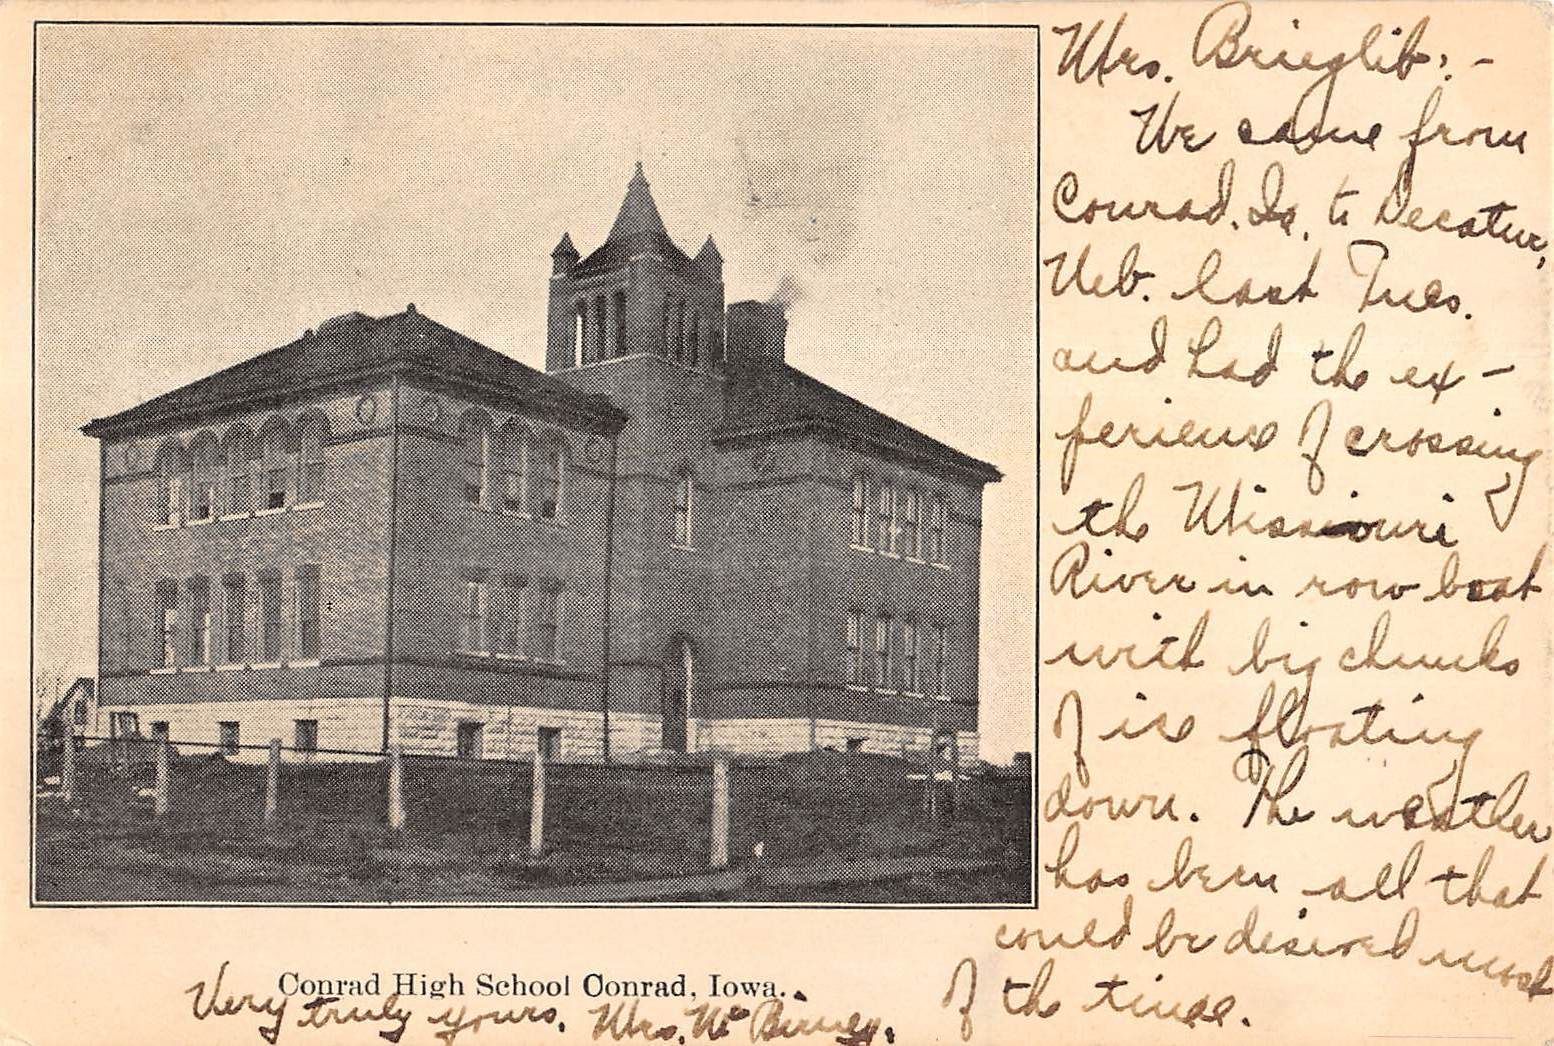 Mrs. Brieglib:-
We came from
Conrad, Ia, to Decatur,
Neb. last Tues.
and had the ex-
perience of crossing
the Missouri
River in row boat
with big chunks
of ice floating
down. The weather
has been all that
could be desired most
of the time.
Conrad High School Conrad, Iowa.
Very truly yours, Mrs. Mc Birney.